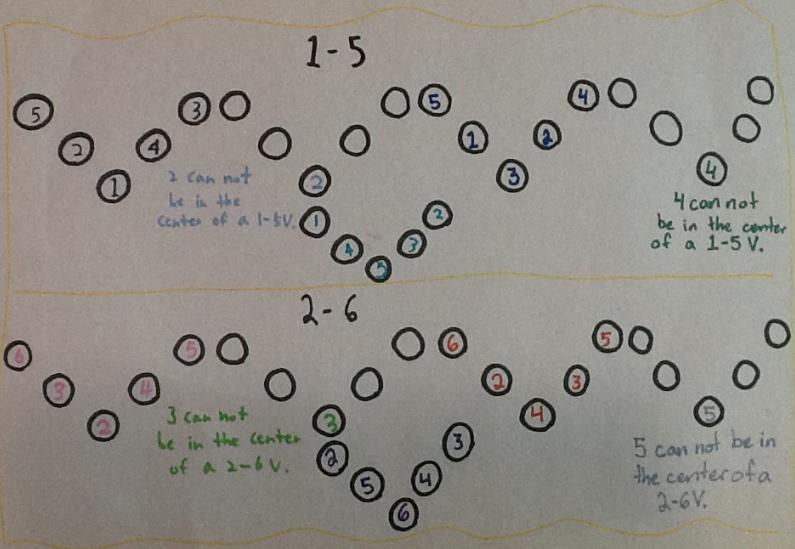 1-5
5 2 1 4 3
2
5 1 3 2 4
4
2 can not
be in the
center of a 1-5V.
1 4 5 3 2
4 can not
be in the center
of a 1-5 V.
2-6
6 3 2 4 5
3
6 2 4 3 5
5
3 can not
be in the center
of a 2-6 V.
2 5 6 4 3
5 can not be in
the center of a
2-6V.